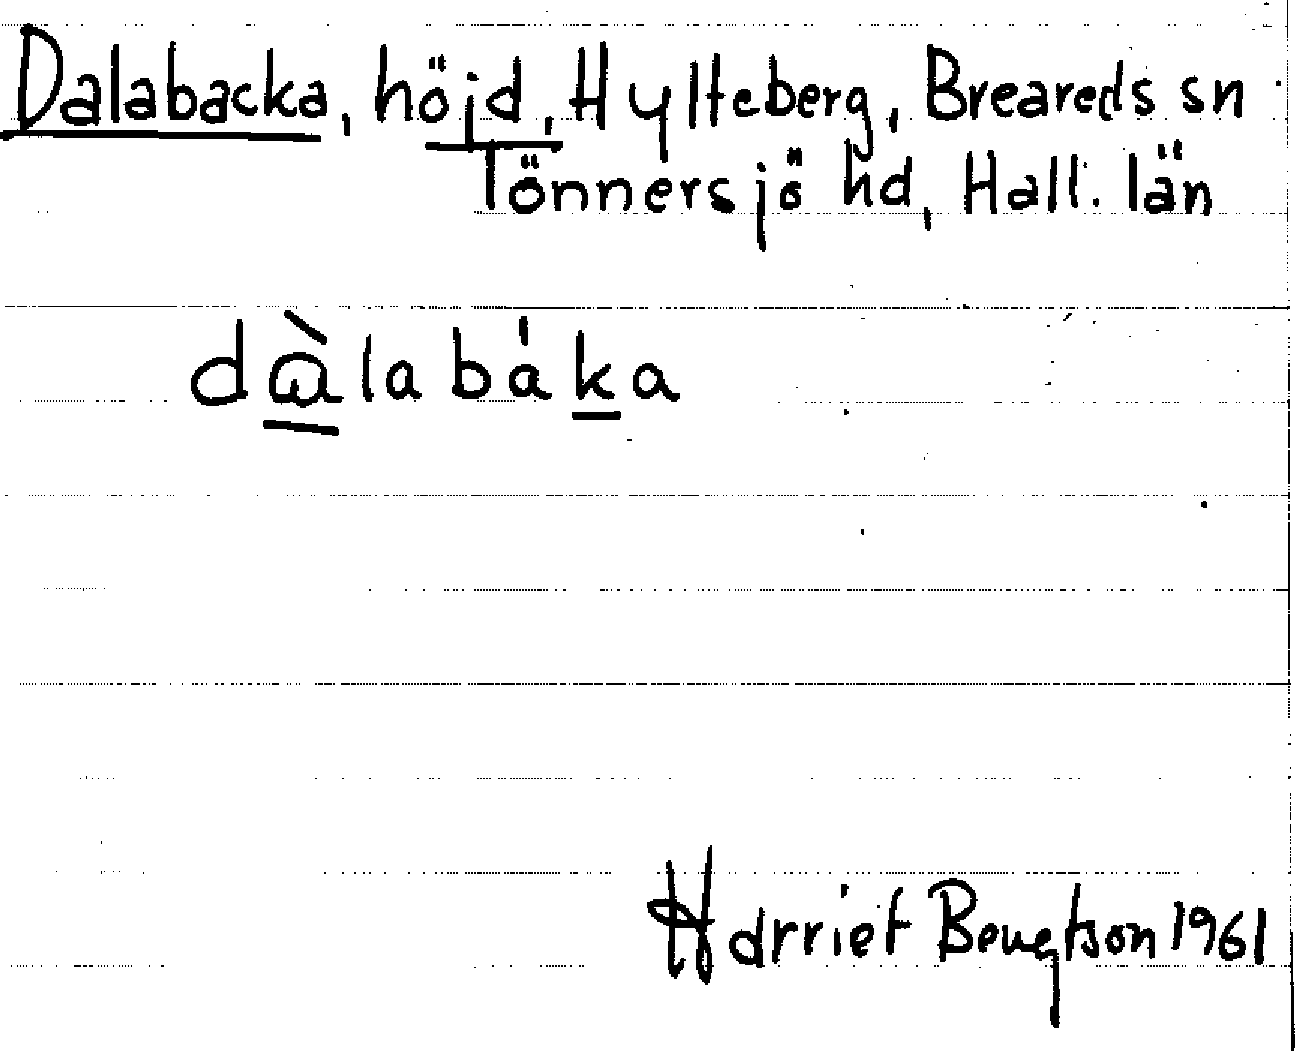 Dalabacka, höjd, Hylteberg, Breareds sn
Tönnersjö hd, Hall. län
dɑ̀labákа
Harriet Bengtson 1961